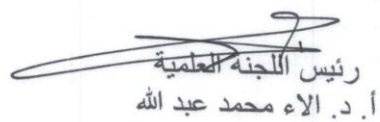 رئيس اللجنه العلمية
أ. د. الاء محمد عبد الله